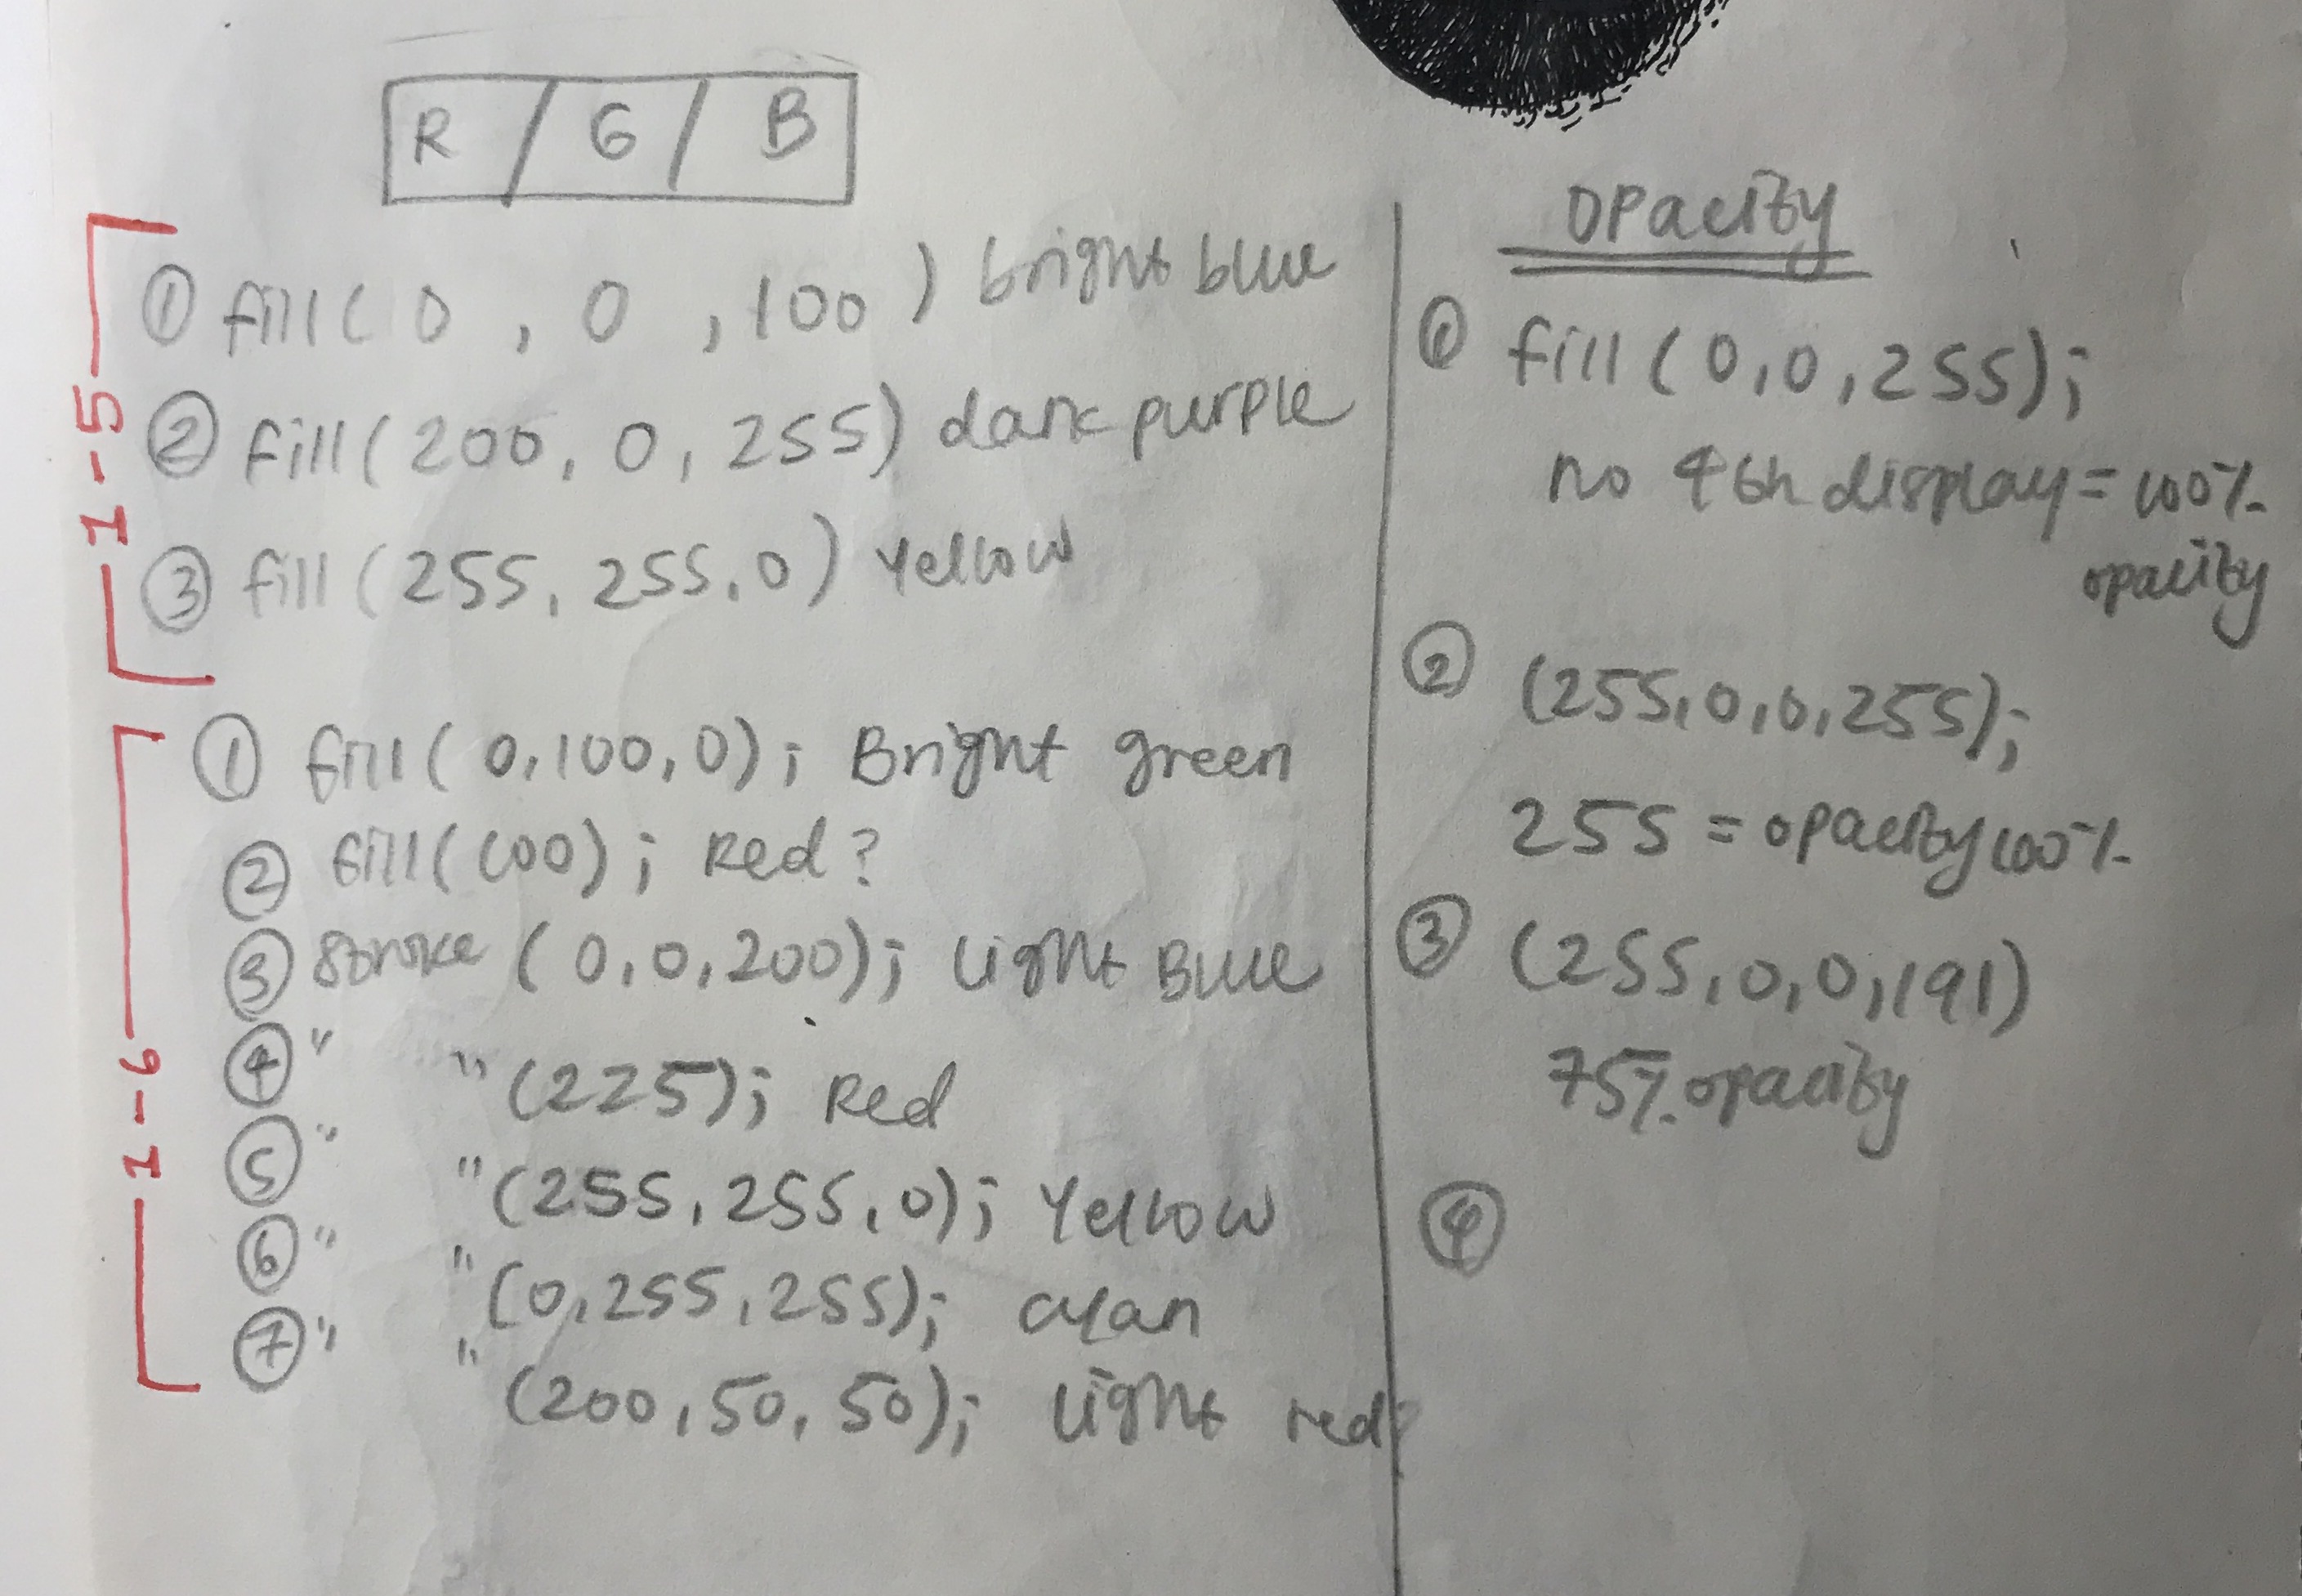 R / G / B
1-5
① fill( 0 , 0 , 100 ) bright blue
② fill(200, 0, 255) dark purple
③ fill(255, 255, 0) Yellow
1-6
① fill( 0,100,0); Bright green
② fill(100); Red?
③ stroke ( 0,0,200); Light Blue
④ " " (225); Red
⑤ " " (255, 255, 0); Yellow
⑥ " " (0,255,255); cyan
⑦ " " (200,50,50); Light red?
opacity
① fill (0,0,255);
no 4th display = 100%
opacity
② (255,0,0,255);
255 = opacity 100%
③ (255,0,0,191)
75% opacity
④